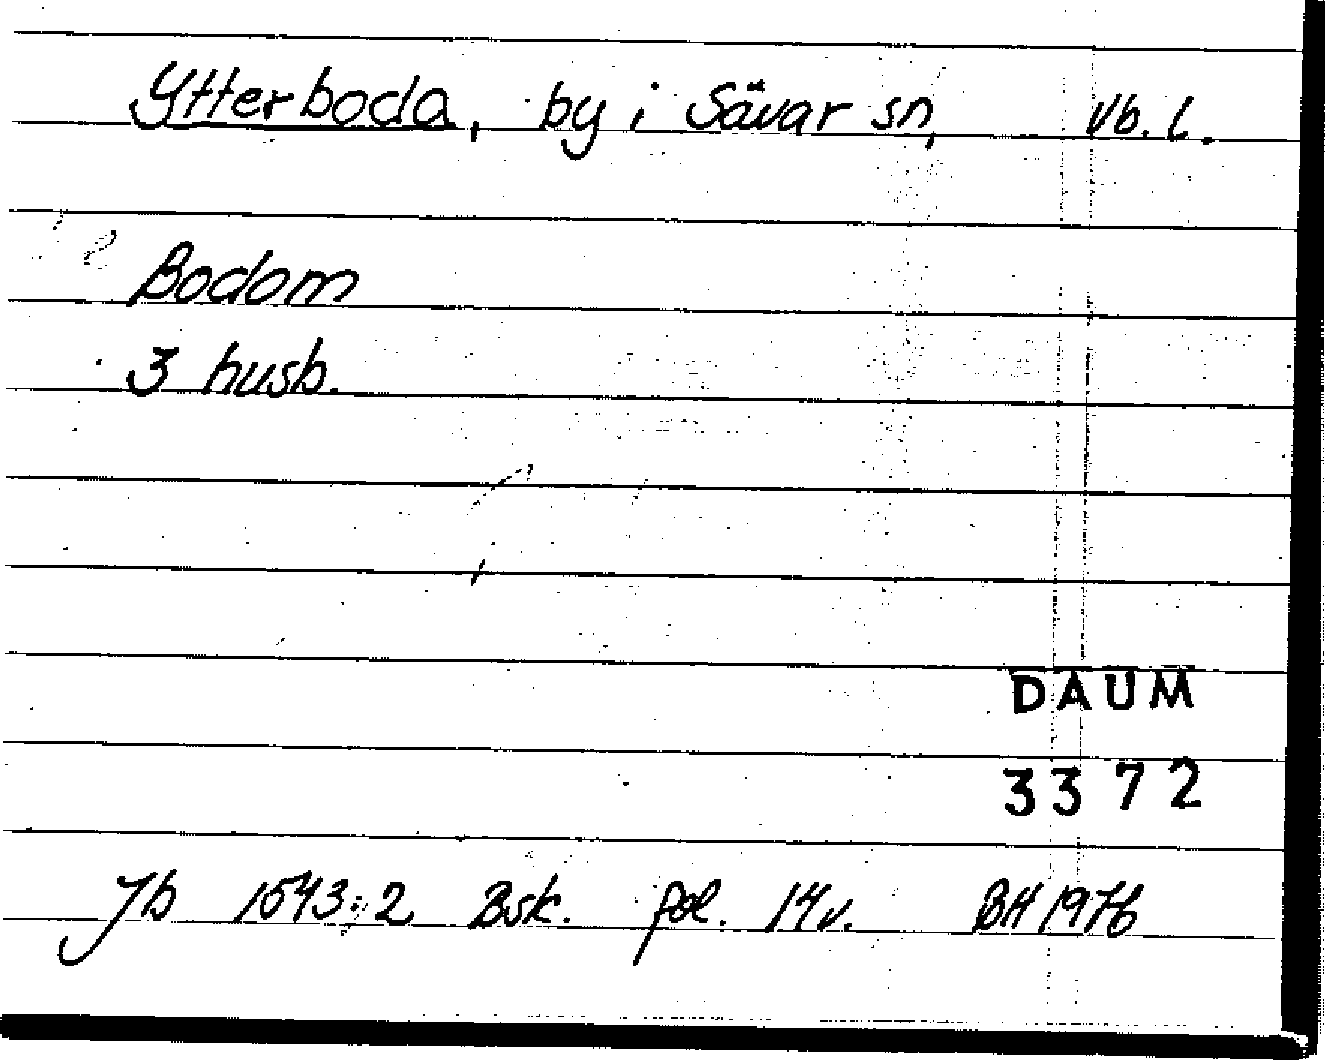 Ytterboda, by i Sävar sn, Vb. l.
Bodom
3 husb.
DAUM
3372
Jb 1543:2 Bsk. fol. 14v. BH 1976